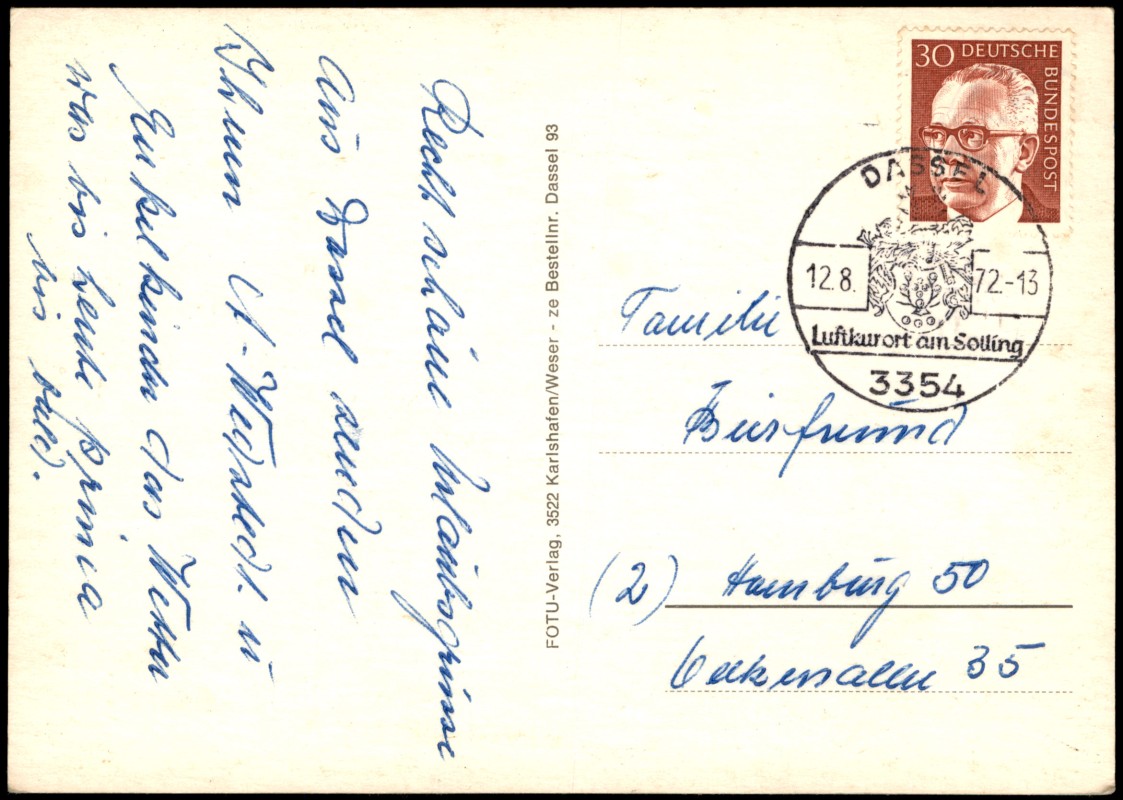 Recht schöne Urlaubsgrüsse
aus Dassel senden
Ihnen A. u.
Enkelkinder das Wetter
war bis heute prima
bis bald.
FOTU-Verlag, 3522 Karlshafen/Weser - ze Bestellnr. Dassel 93
30 DEUTSCHE
BUNDESPOST
DASSEL
12.8.
72.-13
Luftkurort am Solling
3354
Familie
Biesfreund
(2) Hamburg 50
35